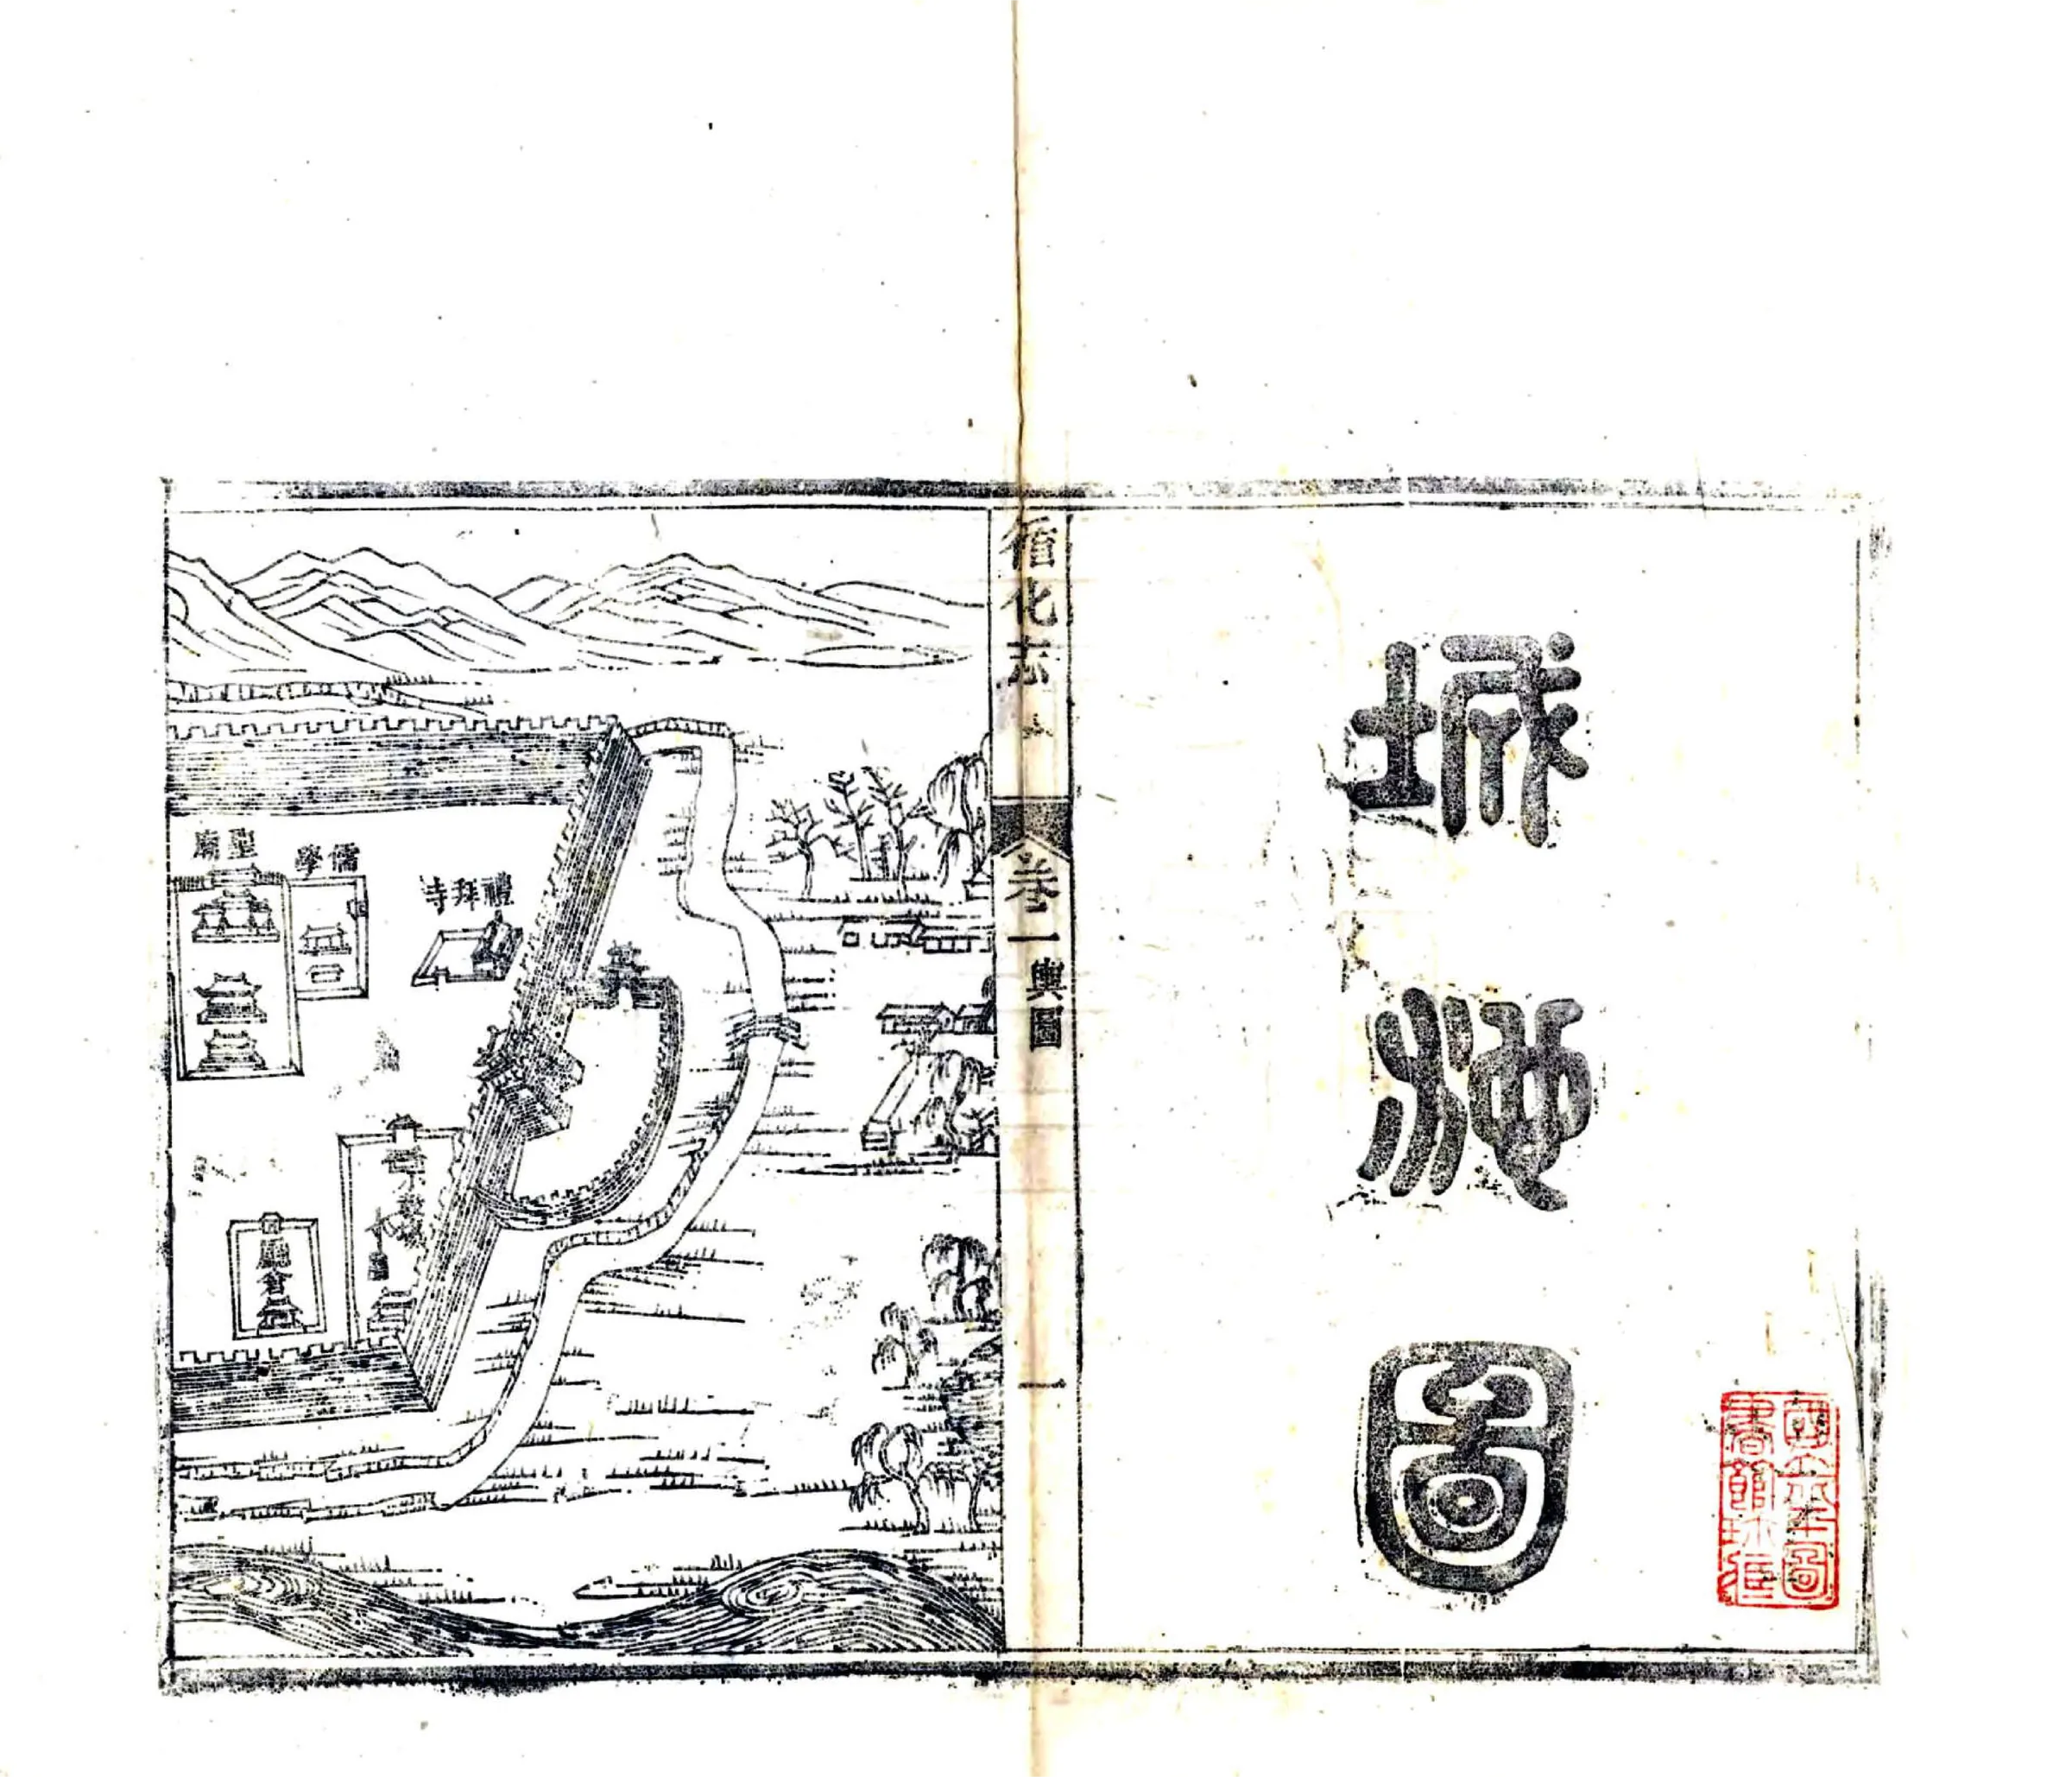 城池圖
國立北平圖
書館珍藏
循化志
卷一
輿圖
一
禮拜寺
儒學
聖廟
廳倉